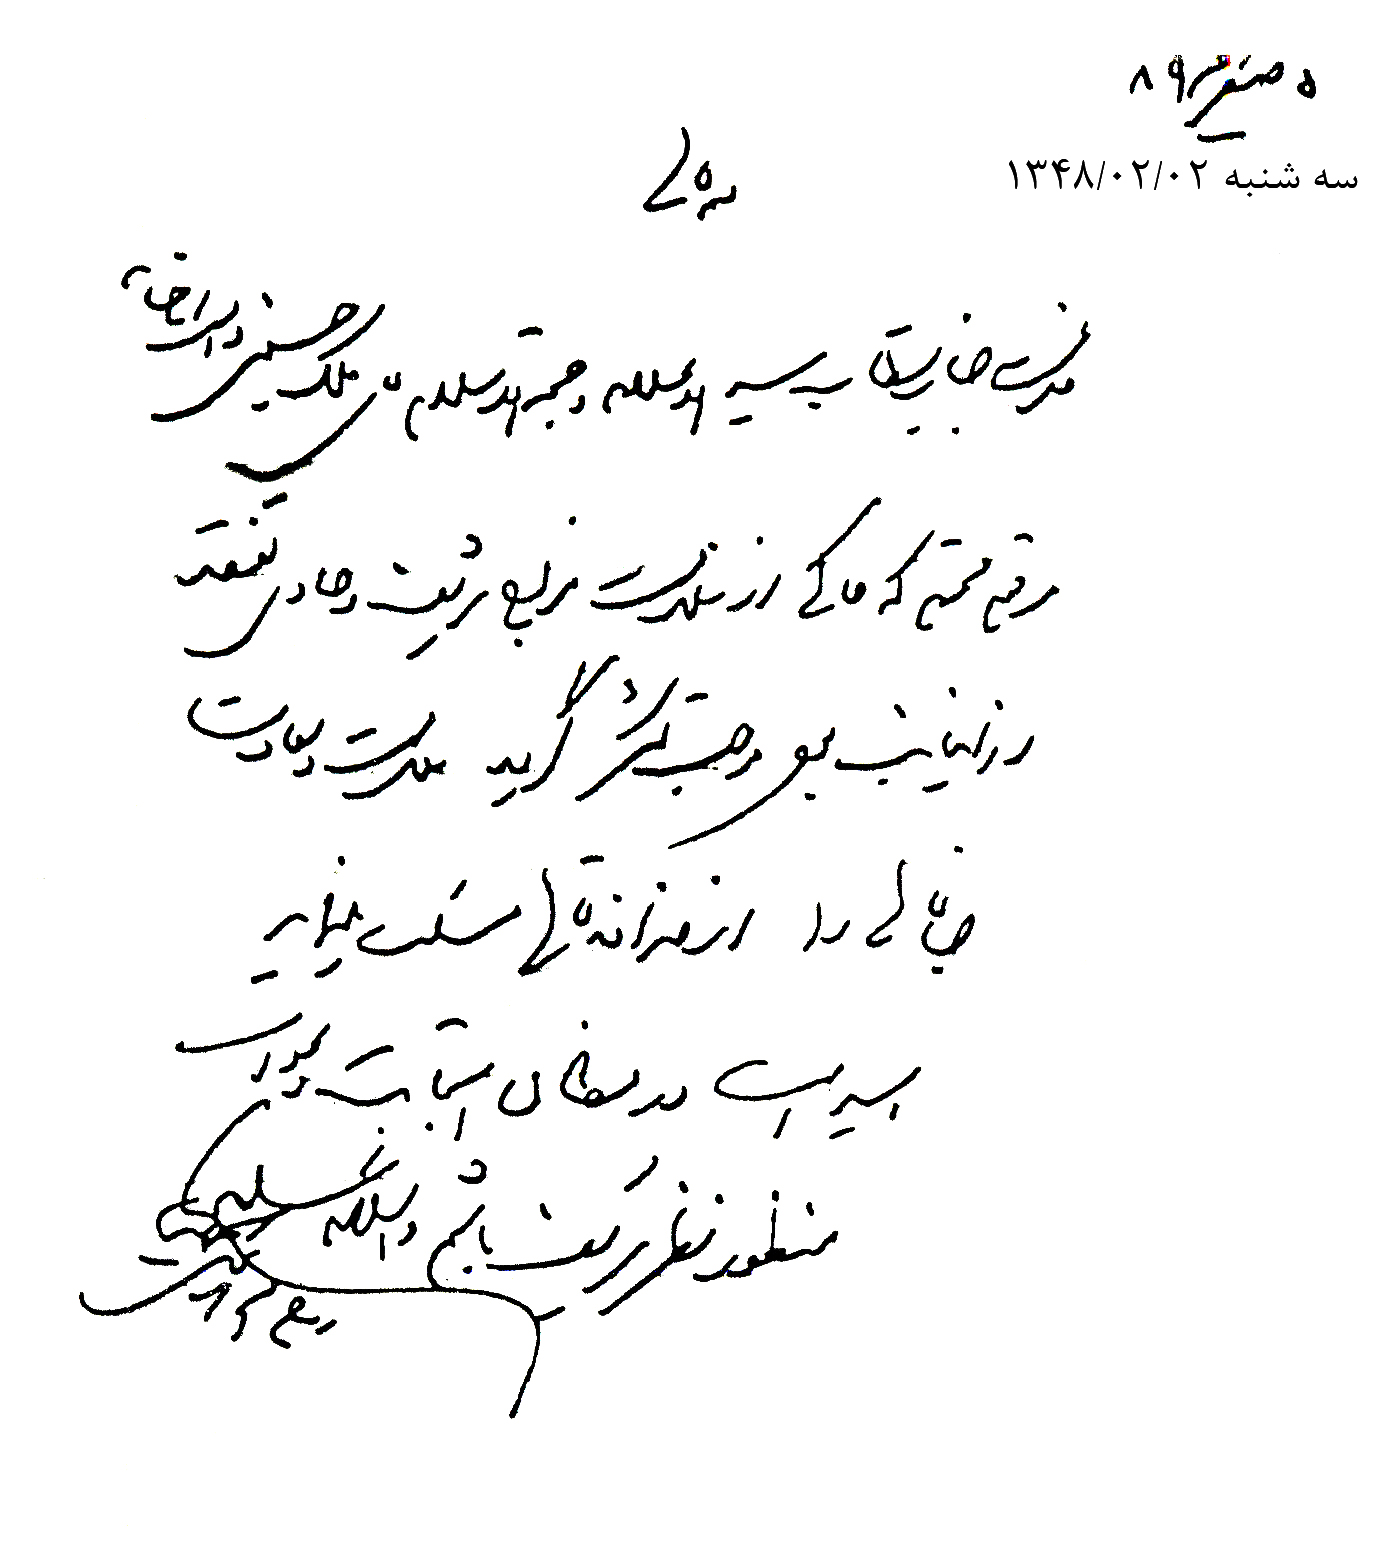 ۵ صفر ۸۹
سه شنبه ۱۳۴۸/۰۲/۰۲
بسمه تعالی
خدمت جناب مستطاب سید الاعلام و حجة الاسلام آقای ملک حسینی دامت افاضاته
مرقوم محترم که حاکی از سلامت مزاج شریف و حاوی تفقد
از اینجانب بود موجب تشکر گردید سلامت و سعادت
جنابعالی را از خداوند تعالی مسئلت مینماید
امید است در مظان استجابت دعوات
منظور نظر شریف باشم والسلام علیکم
روح الله الموسوی